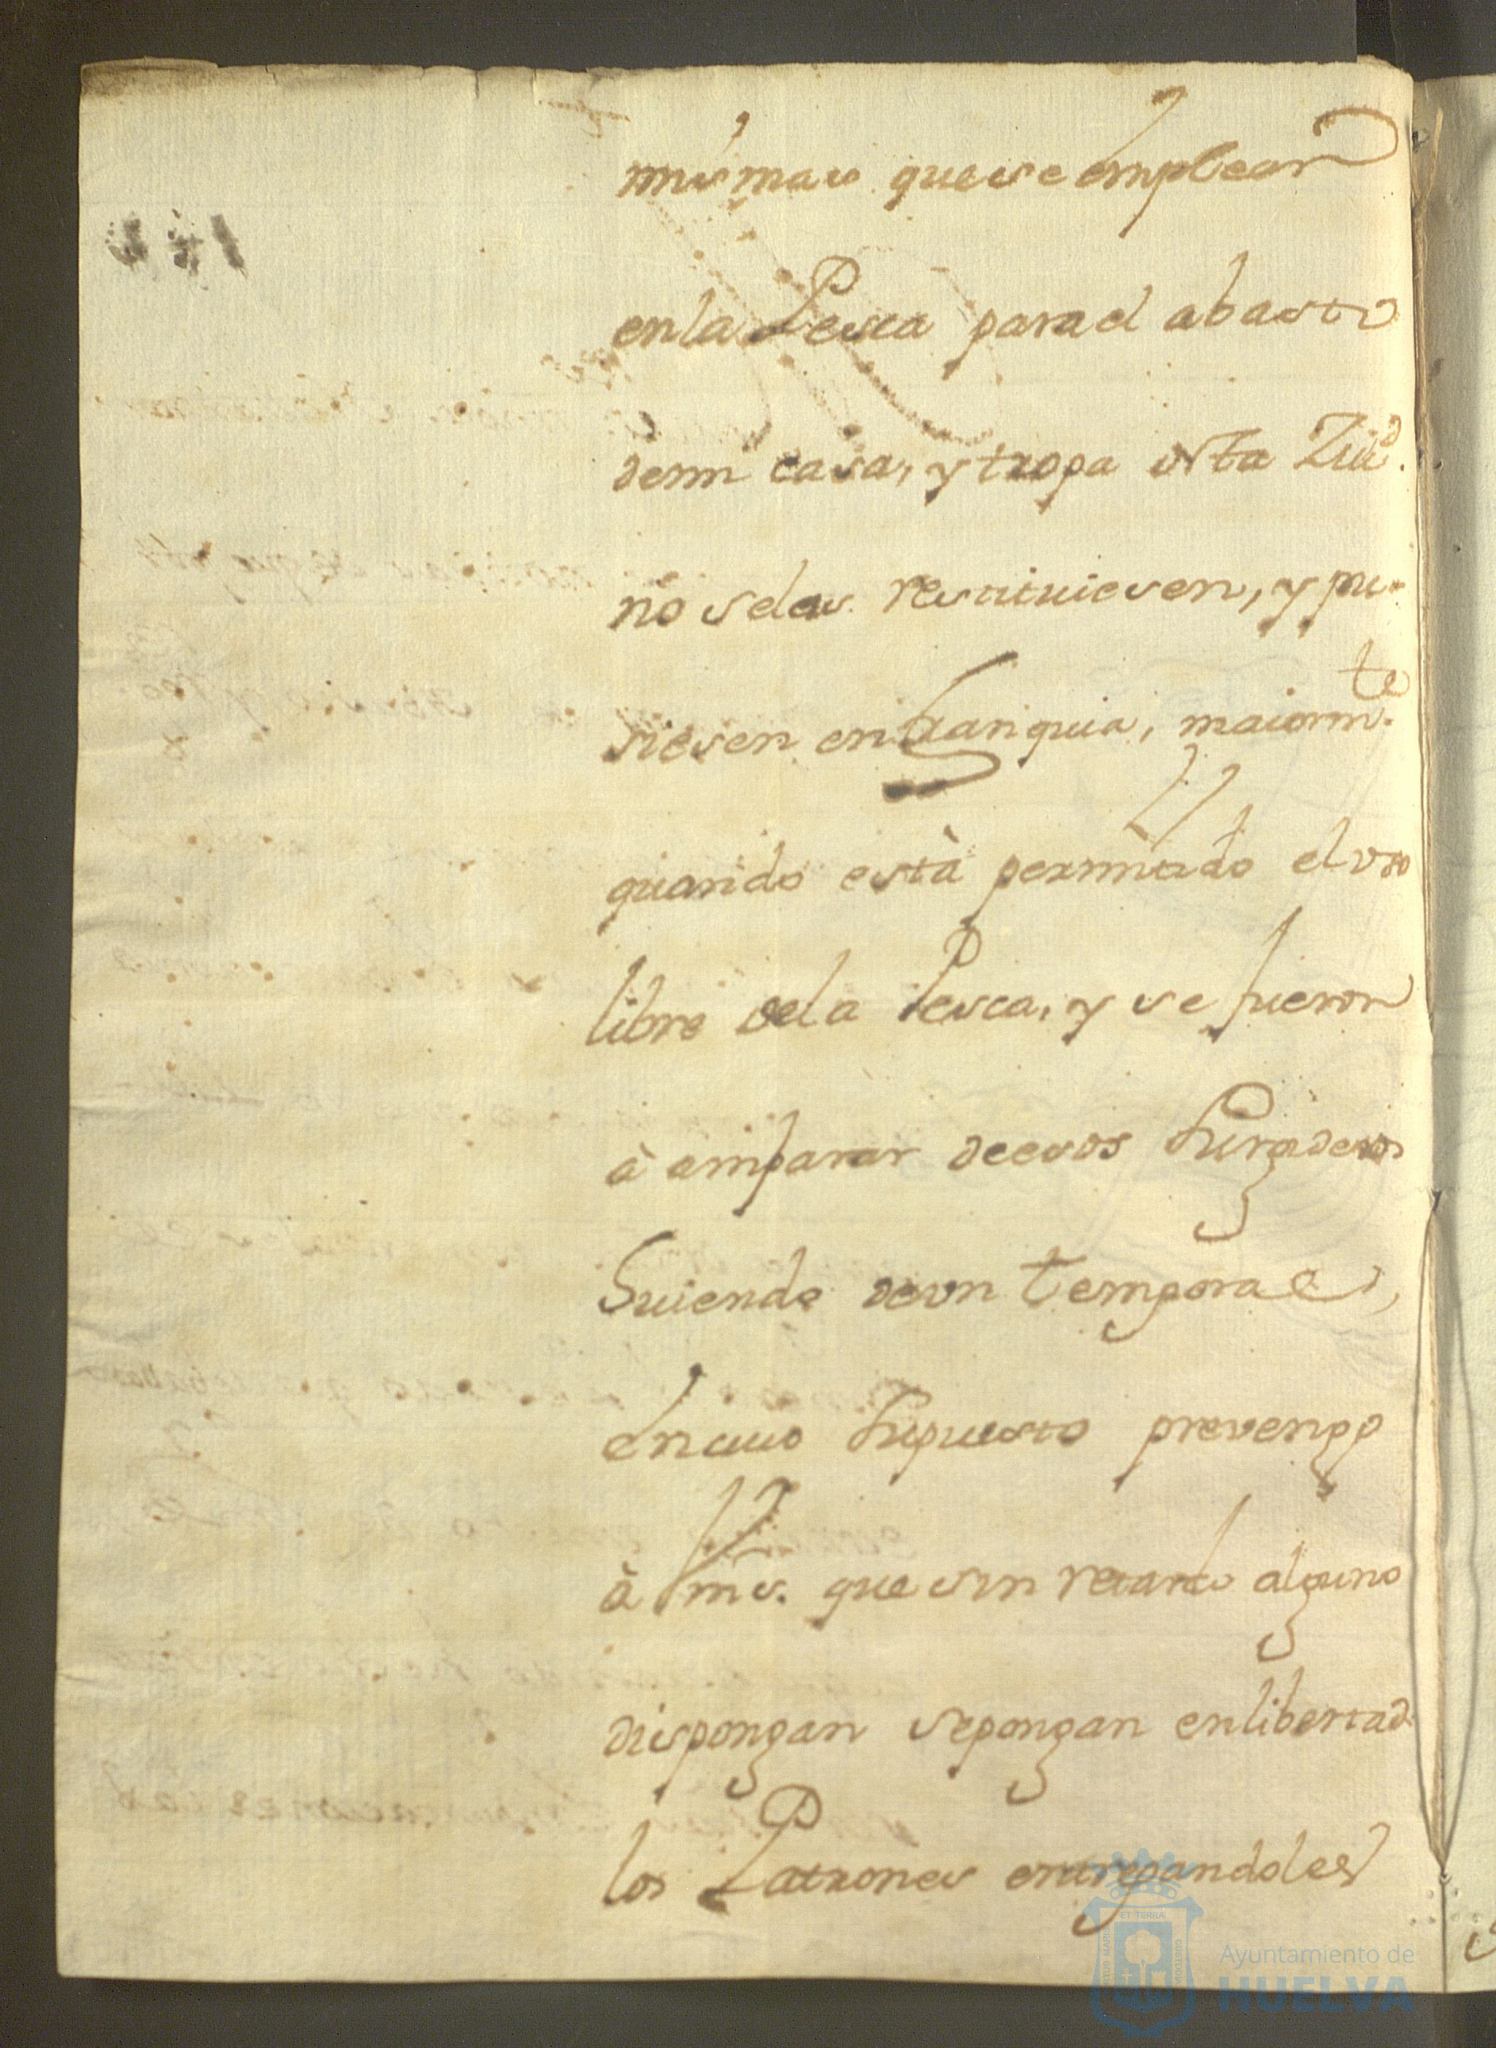 mismas que se emplean
en la Pesca para el abasto
de mi casa, y tropa desta Ziud.
no selas restituiesen, y pu-
siesen en franquia, maiormte.
quando està permitido el vso
libre dela Pesca, y se fueron
à amparar de esos Surgideros
huiendo de vn temporal,
en cuio supuesto prevengo
à Vms. que sin retardo alguno
dispongan se pongan en libertad
los Patrones entregandoles
ET TERRAE
Ayuntamiento de
HUELVA